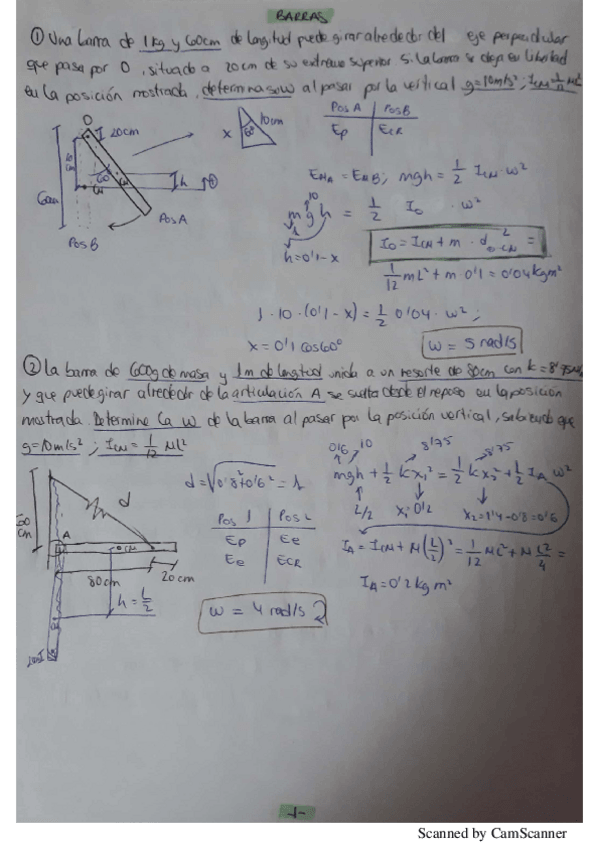 BARRAS
① Una barra de 1kg y 60cm de longitud puede girar alrededor del eje perpendicular
que pasa por O, situado a 20cm de su extremo superior. Si la barra se deja en libertad
en la posición mostrada, determina su w al pasar por la vertical g=10m/s²; I_CM=1/12 ML²
O
I 20cm
60
CM
h
60cm
Pos A
Pos B
x
60
10cm
Pos A | Pos B
Ep | E_CR
E_MA = E_MB; mgh = 1/2 I_CM·w²
10
mgh = 1/2 I_O · w²
1
h=0'1-x
I_O = I_CM + m · d²_O-CM =
1/12 mL² + m·0'1² = 0'04 kgm²
1·10·(0'1-x) = 1/2 0'04·w²;
x = 0'1 cos60°
w = 5 rad/s
② La barra de 600g de masa y 1m de longitud unida a un resorte de 80cm con k=8'75N/m
y que puede girar alrededor de la articulación A se suelta desde el reposo en la posición
mostrada. Determine la w de la barra al pasar por la posición vertical, sabiendo que
g=10m/s²; I_CM = 1/12 ML²
60
cm
A
d
CM
80cm
20cm
h=L/2
d=√0'8²+0'6² = 1
Pos 1 | Pos 2
Ep | Ee
Ee | E_CR
w = 4 rad/s
0'6 10 8'75 8'75
mgh + 1/2 kx₁² = 1/2 kx₂² + 1/2 I_A w²
L/2 x₁=0'2 x₂=1'4-0'8=0'6
I_A = I_CM + M(L/2)² = 1/12 ML² + M L²/4 =
I_A = 0'2 kg m²
-1-
Scanned by CamScanner